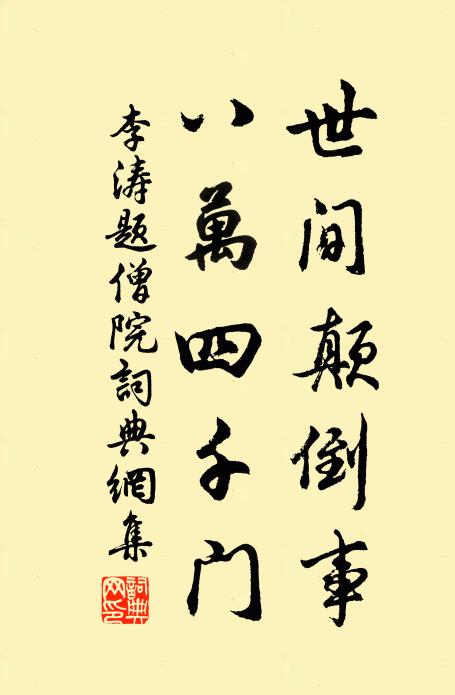 世间颠倒事
八萬四千门
李涛题僧院詞典網集
詞典网印